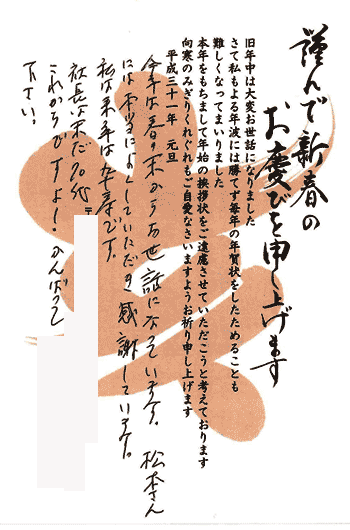 謹んで新春の
お慶びを申し上げます
旧年中は大変お世話になりました
さて私もよる年波には勝てず毎年の年賀状をしたためることも
難しくなってまいりました
本年をもちまして年始の挨拶状をご遠慮させていただこうと考えております
向寒のみぎりくれぐれもご自愛なさいますようお祈り申し上げます
平成三十一年 元旦
今年は春の末からお世話になっています。 松本さん
には本当によくしていただき感謝しています。
私は来年は九十才です。
社長は未だ70代
これからですよ! がんばって
下さい。
〒